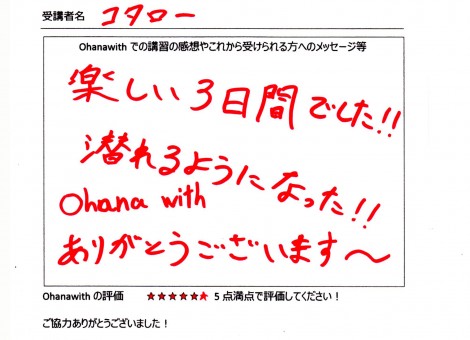 受講者名 コタロー
Ohanawith での講習の感想やこれから受けられる方へのメッセージ等
楽しい3日間でした!!
潜れるようになった!!
Ohana with
ありがとうございます〜
Ohanawith の評価 ★★★★★ 5 点満点で評価してください！
ご協力ありがとうございました！